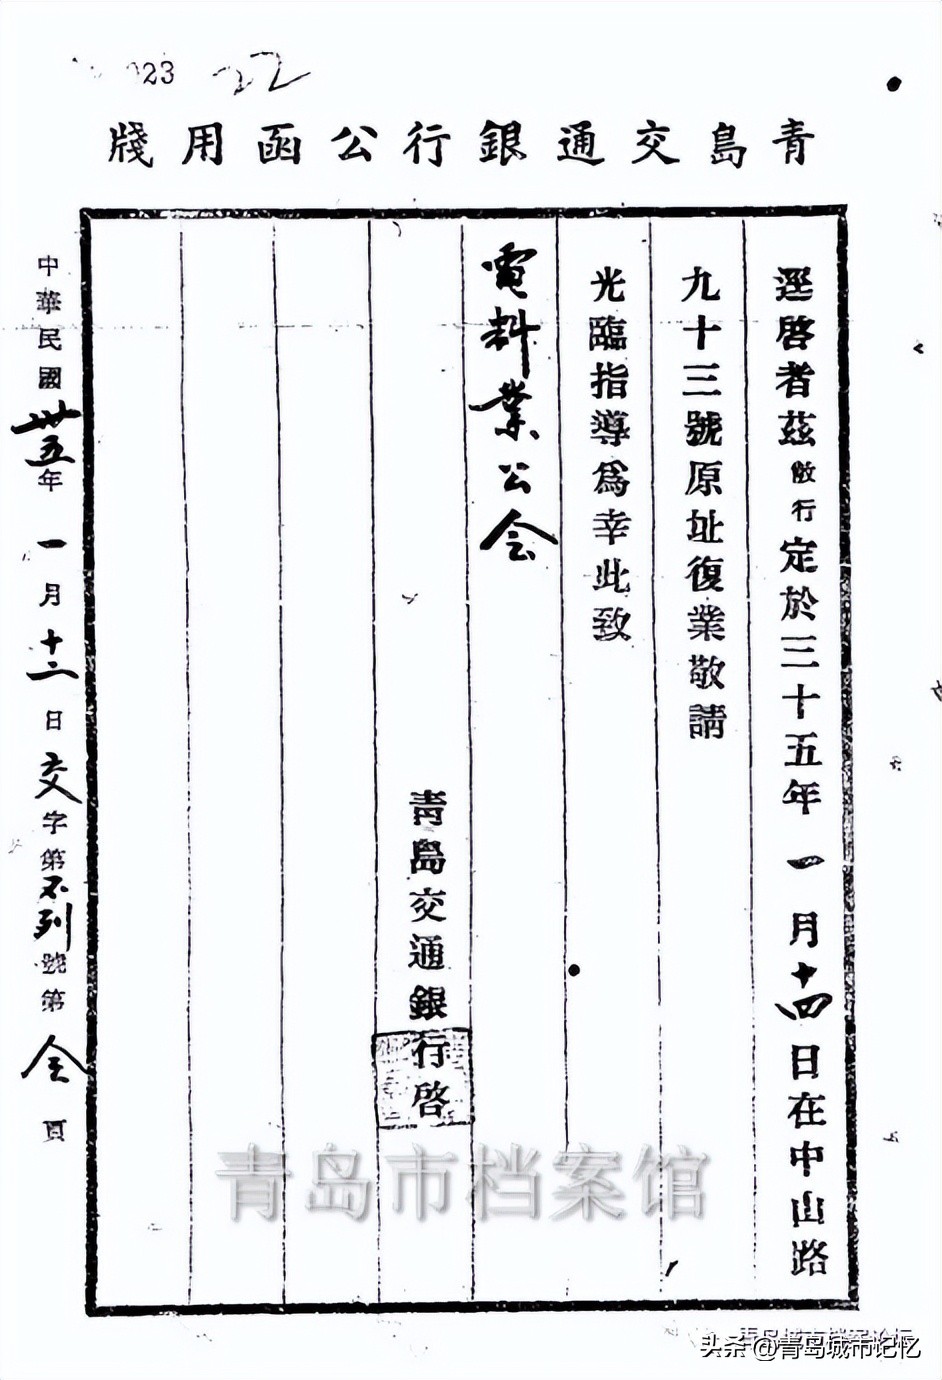 023 22
青島交通銀行公函用牋
逕啓者茲敝行定於三十五年一月十四日在中山路
九十三號原址復業敬請
光臨指導爲幸此致
電料業公会
青島交通銀行啓
中華民國卅五年一月十二日交字第不列號第全頁
青岛市档案馆
头条@青岛城市记忆